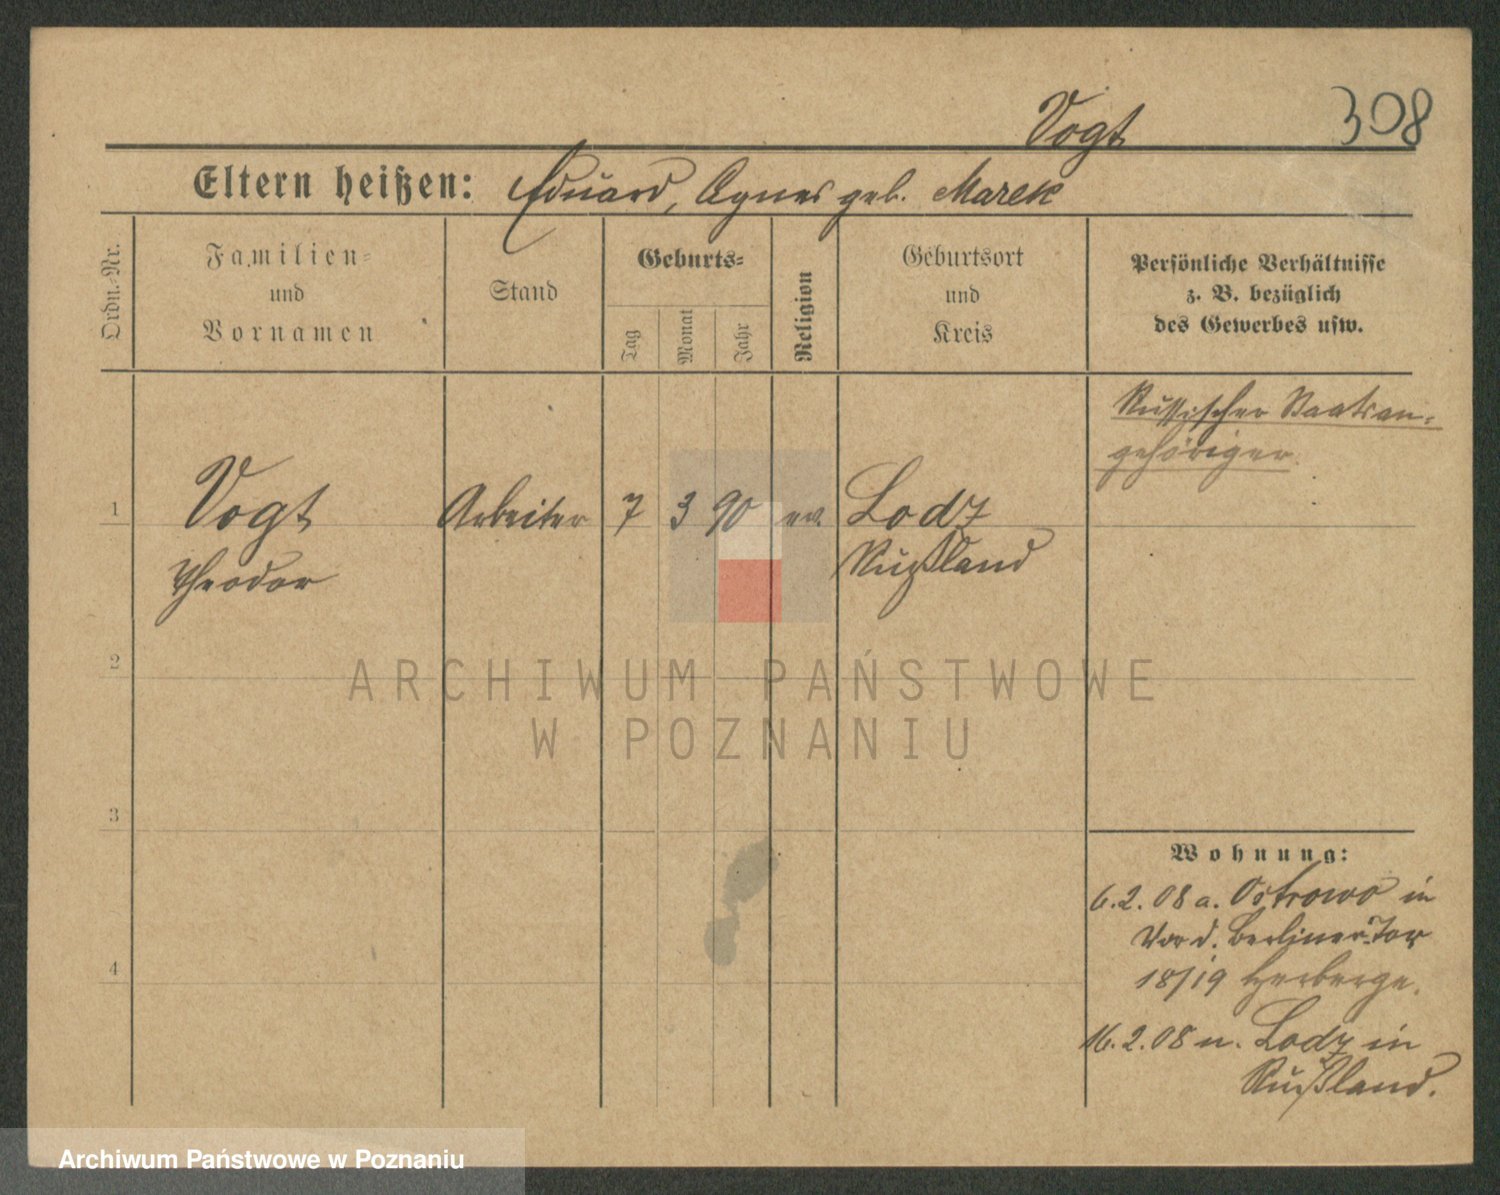 Vogt
308
Eltern heißen: Eduard, Agnes geb. Marek
Ordn.-Nr.
Familien=
und
Vornamen
Stand
Geburts=
Tag
Monat
Jahr
Religion
Geburtsort
und
Kreis
Persönliche Verhältnisse
z. B. bezüglich
des Gewerbes usw.
Russischer Staatsan-
gehöriger.
1 Vogt Arbeiter 7 3 90 ev. Lodz
Theodor Rußland
2
ARCHIWUM PAŃSTWOWE
W POZNANIU
3
Wohnung:
6.2.08 a. Ostrowo in
Vor d. Berliner Tor
18/19 Herberge.
4
16.2.08 n. Lodz in
Rußland.
Archiwum Państwowe w Poznaniu